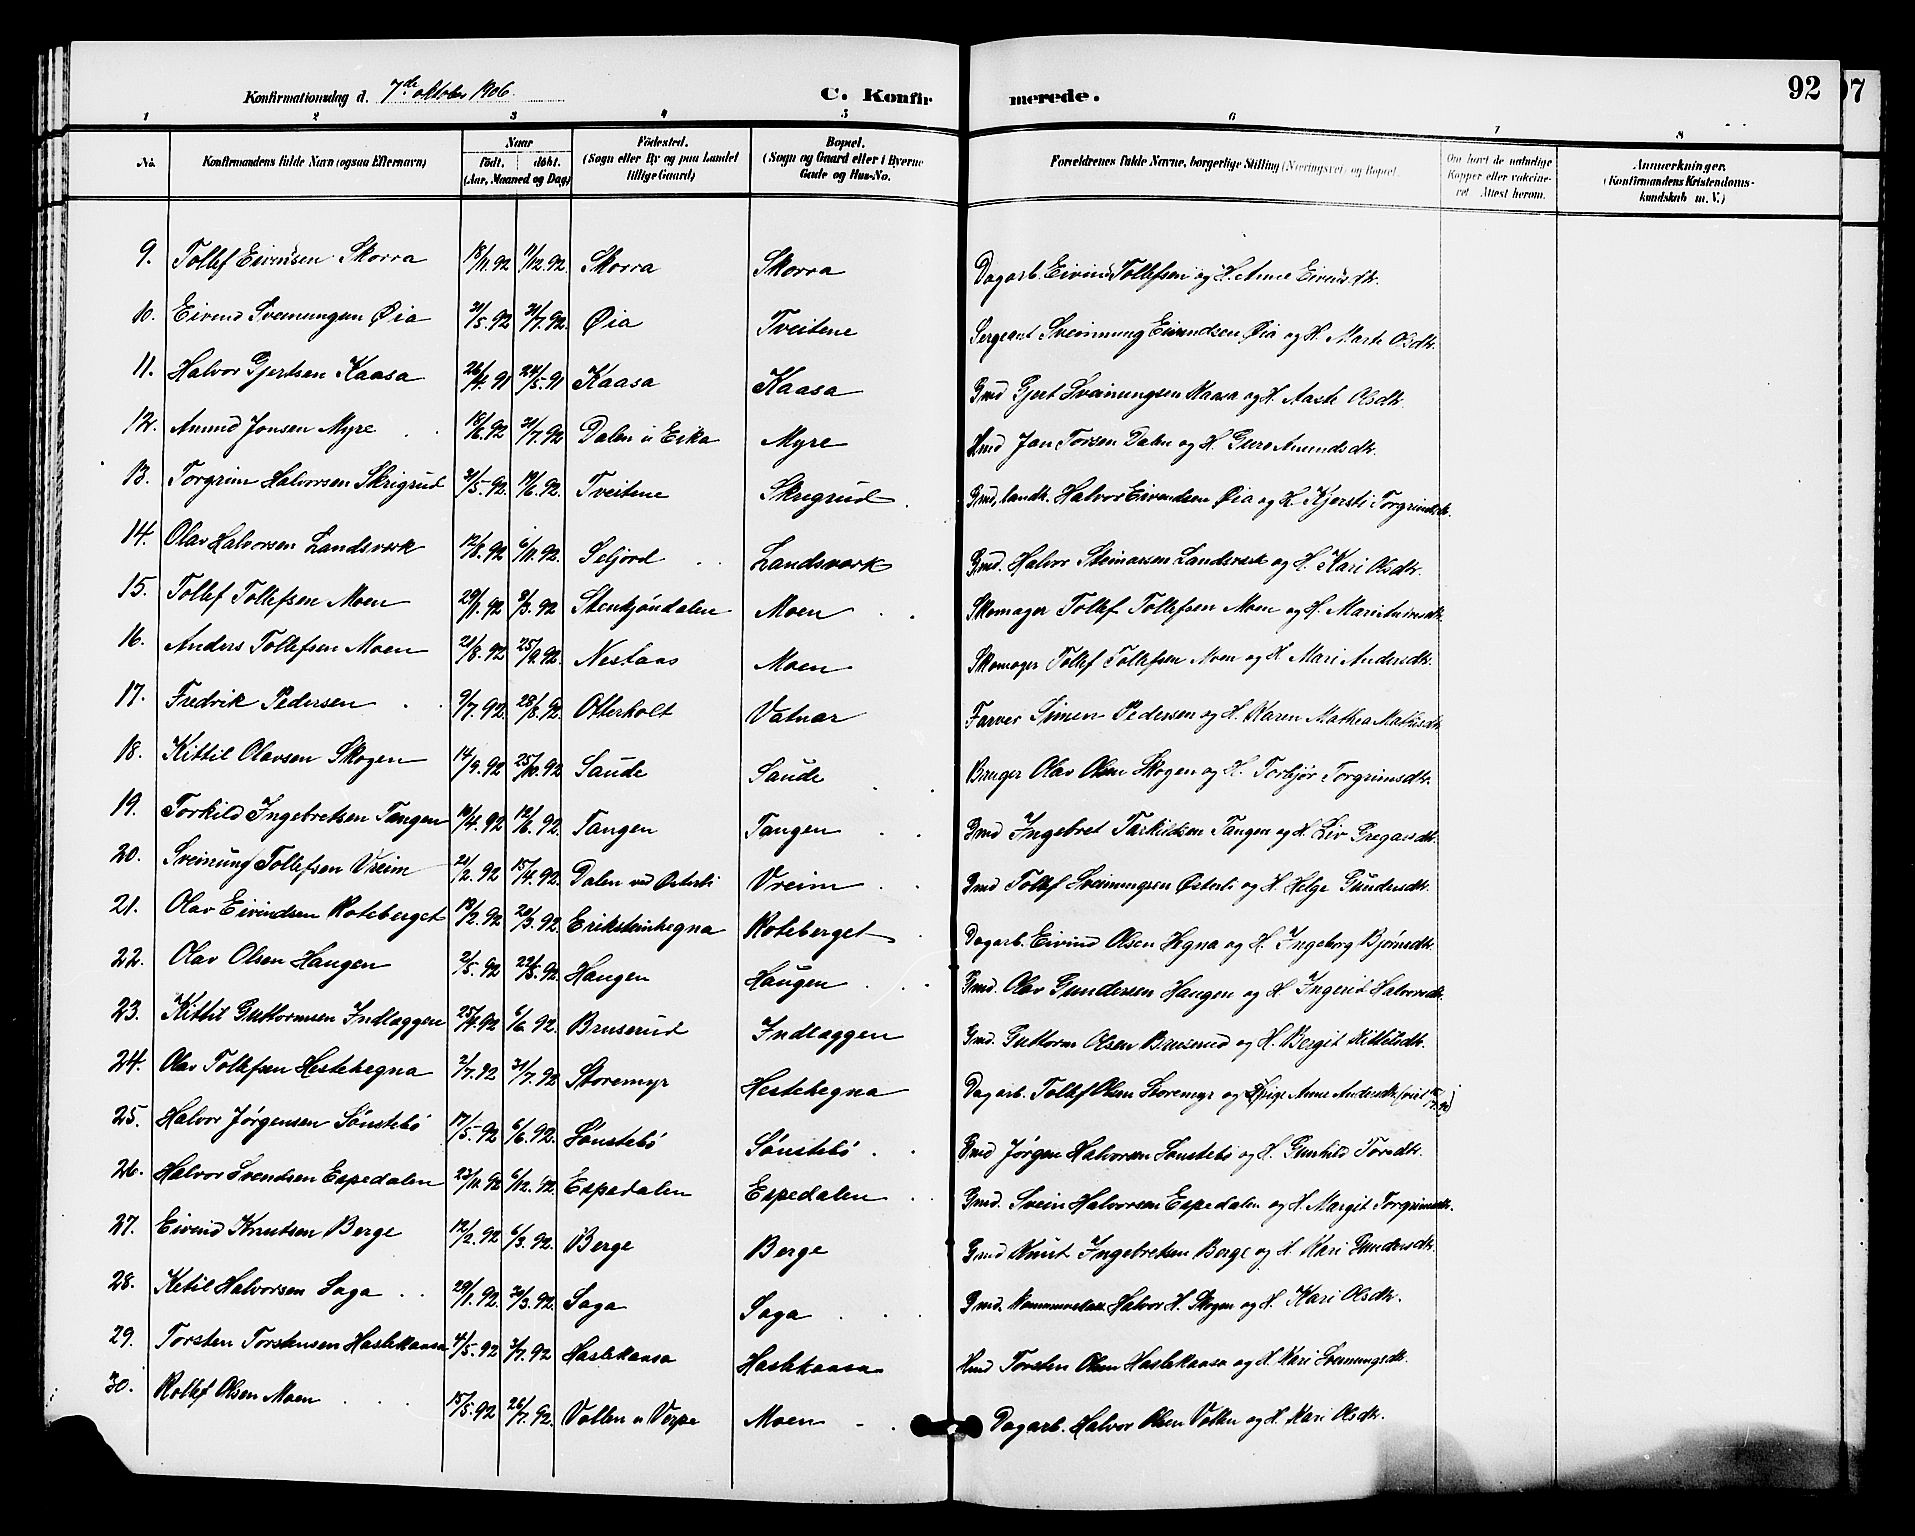 Konfirmationsdag d. 7de oktober 1906. C. Konfirmerede. 92
1 2 3 4 5 6 7 8
No. Konfirmandens fulde Navn (ogsaa Efternavn) Naar født. døbt. (Aar, Maaned og Dag) Fødested. (Sogn eller By og paa Landet tillige Gaard) Bopæl. (Sogn og Gaard eller i Byerne Gade og Hus-No. Forældrenes fulde Navne, borgerlige Stilling (Næringsvei) og Bopæl. Om havt de naturlige Kopper eller vakcineret Attest herom. Anmerkninger. (Konfirmandens Kristendomskundskab m. V.)
9. Tollef Eivindsen Skorra 18/11.92 11/12.92 Skorra Skorra Dagarb. Eivind Tollefsen og H. Anne Eivindsdtr.
10. Eivind Sveinungsen Øia 31/5.92 31/7.92. Øia Tveitene Sergeant Sveinung Eivindsen Øia og H. Marte Olsdtr.
11. Halvor Gjertsen Kaasa 26/4.91 24/5.91 Kaasa Kaasa Gmd Gjert Sveinungsen Kaasa og H. Aaste Olsdtr.
12. Amund Jonsen Myre 18/6.92 31/7.92 Dalen u Eika Myre Hmd Jon Torsen Dalen og H. Guro Amundsdtr.
13. Torgrim Halvorsen Skrigrud 31/5.92 19/6.92. Tveitene Skrigrud Gmd, landh. Halvor Eivendsen Øia og H. Kjersti Torgrimsdtr.
14. Olav Halvorsen Landsverk 12/8.92 6/11.92. Seljord Landsverk Gmd. Halvor Steinarsen Landsverk og H. Kari Olsdtr.
15. Tollef Tollefsen Moen 29/1.92 9/3.92 Stenkjøndalen Moen Skomager Tollef Tollefsen Moen og H. Mari Andersdtr.
16. Anders Tollefsen Moen 21/8.92 25/9.92. Nestaas Moen Skomager Tollef Tollefsen Moen og H Mari Andersdtr.
17. Fredrik Pedersen 9/7.92. 28/8.92. Otterholt Vatnar Farver Simen Pedersen og H. Karen Mathea
18. Kittil Olavsen Skogen 14/9.92 25/10.92. Saude Saude Bruger Olav Olsen Skogen og H. Torbjør Torgrimsdtr.
19. Torkild Ingebretsen Tangen 10/4.92 12/6.92. Tangen Tangen Gmd Ingebret Tarkildsen Tangen og H. Liv Gregarsdtr.
20. Sveinung Tollefsen Vreim 21/2.92 15/4.92. Dalen ved Østerli Vreim Gmd Tollef Sveinungsen Østerli og H. Helge Gundersdtr.
21. Olav Eivindsen Roteberget 13/2.92 20/3.92. Eriksteinhegna Roteberget Dagarb. Eivind Olsen Hegna og H. Ingeborg Bjørnsdtr.
22. Olav Olsen Haugen 2/5.92 22/5.92. Haugen Haugen Gmd. Olav Gundersen Haugen og H. Ingerid Halvorsdtr.
23. Kittil Guttormsen Indlæggen 25/4.92 6/6.92. Bruserud Indlaggen Gmd. Guttorm Olsen Bruserud og H. Bergit Kittilsdtr.
24. Olav Tollefsen Hestehegna 2/7.92 31/7.92. Storemyr Hestehegna Dagarb. Tollef Olsen Storemyr og Pige Anne Andersdtr.
25. Halvor Jørgensen Sønstebø 17/5.92 6/6.92. Sønstebø Sønstebø Gmd Jørgen Halvorsen Sønstebø og H. Gunhild Torsdtr.
26. Halvor Svendsen Espedalen 25/11.92 6/12.92. Espedalen Espedalen Gmd. Svein Halvorsen Espedalen og H. Margit Torgrimsdtr.
27. Eivind Knutsen Berge 12/2.92 6/3.92. Berge Berge Gmd Knut Ingebretsen Berge og H. Kari Gundersdtr.
28. Ketil Halvorsen Saga 29/1.92. 20/3.92. Saga Saga Gmd. Halvor H. Skogen og H. Kari Olsdtr.
29. Torsten Torstensen Haslekaasa 4/5.92 3/7.92 Haslekaasa Haslekaasa Hmd Torsten Olsen Haslekaasa og H. Kari Sveinungsdtr.
30. Rollef Olsen Moen 15/5.92 26/7.92. Vollen u Verpe Moen Dagarb. Halvor Olsen Vollen og H. Kari Olsdtr.